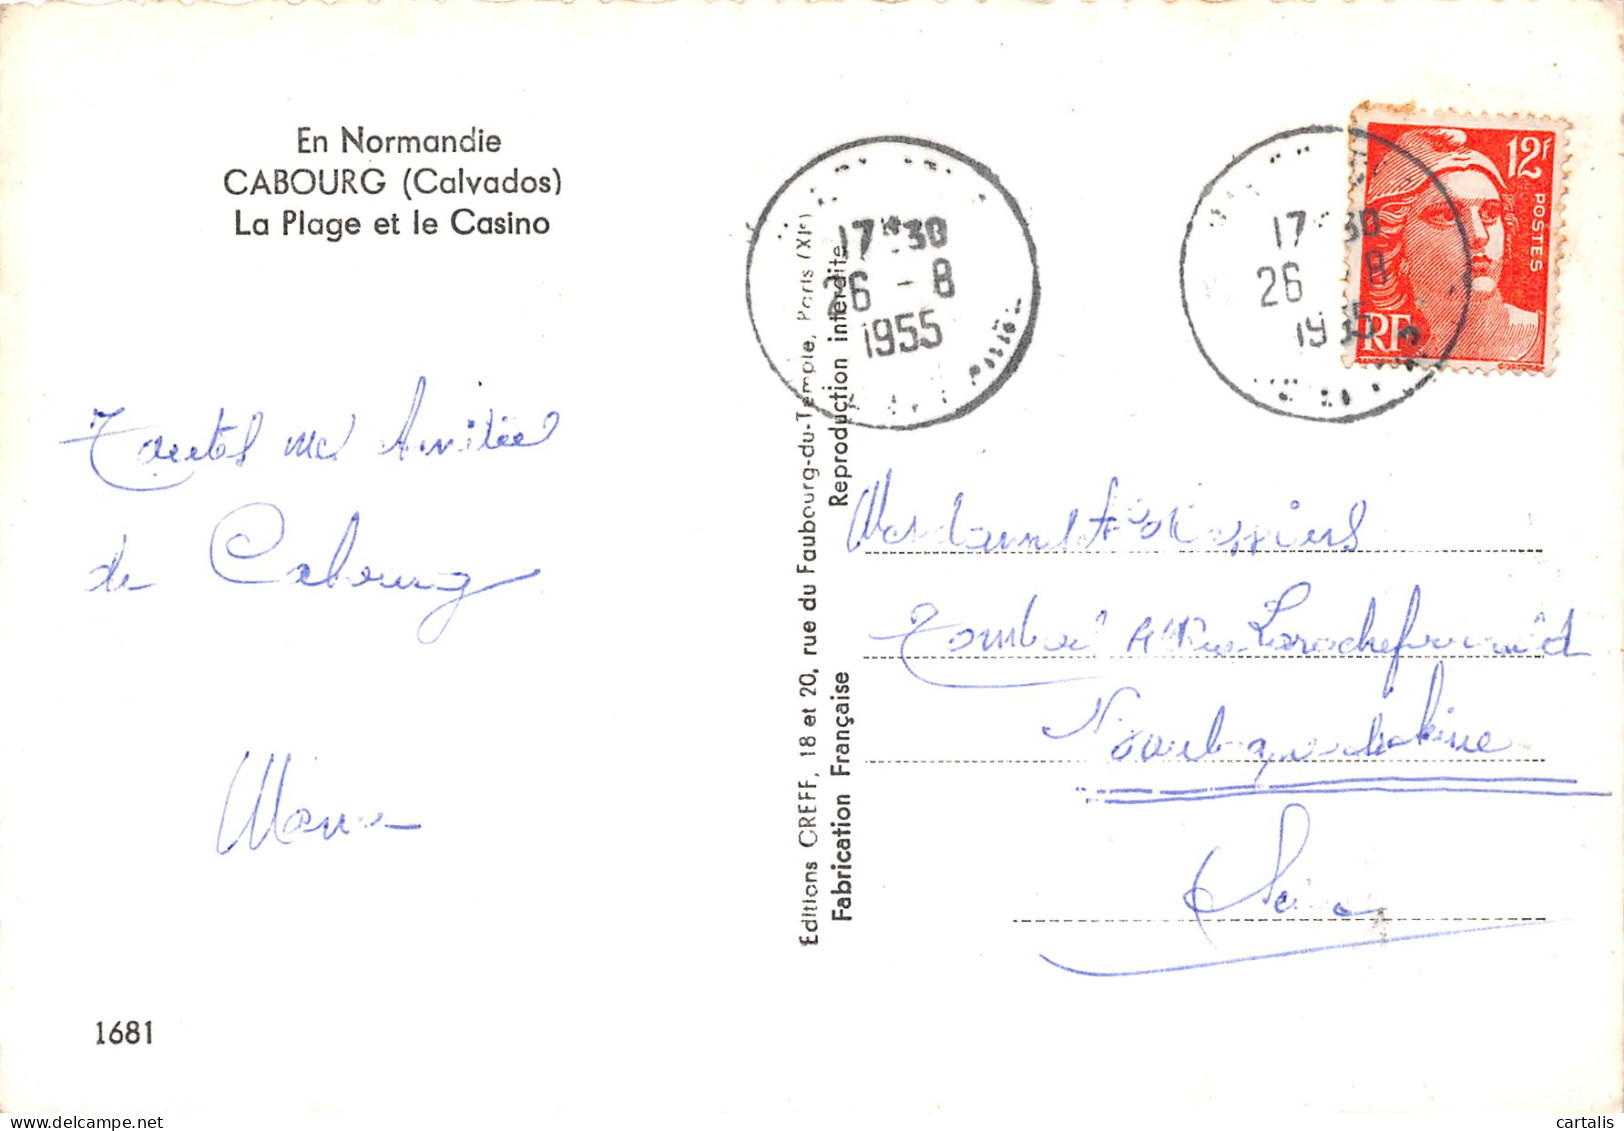 En Normandie
CABOURG (Calvados)
La Plage et le Casino
Toutes mes Amitiée
de Cabourg
1681
Editions CREFF, 18 et 20, rue du Faubourg-du-Temple, Paris (XIe)
Reproduction interdite
Fabrication Française
17 H 30
26 - 8
1955
17 30
26 8
1955
12F
POSTES
RF
Larochefoucauld
Seine
cartalis
delcampe.net